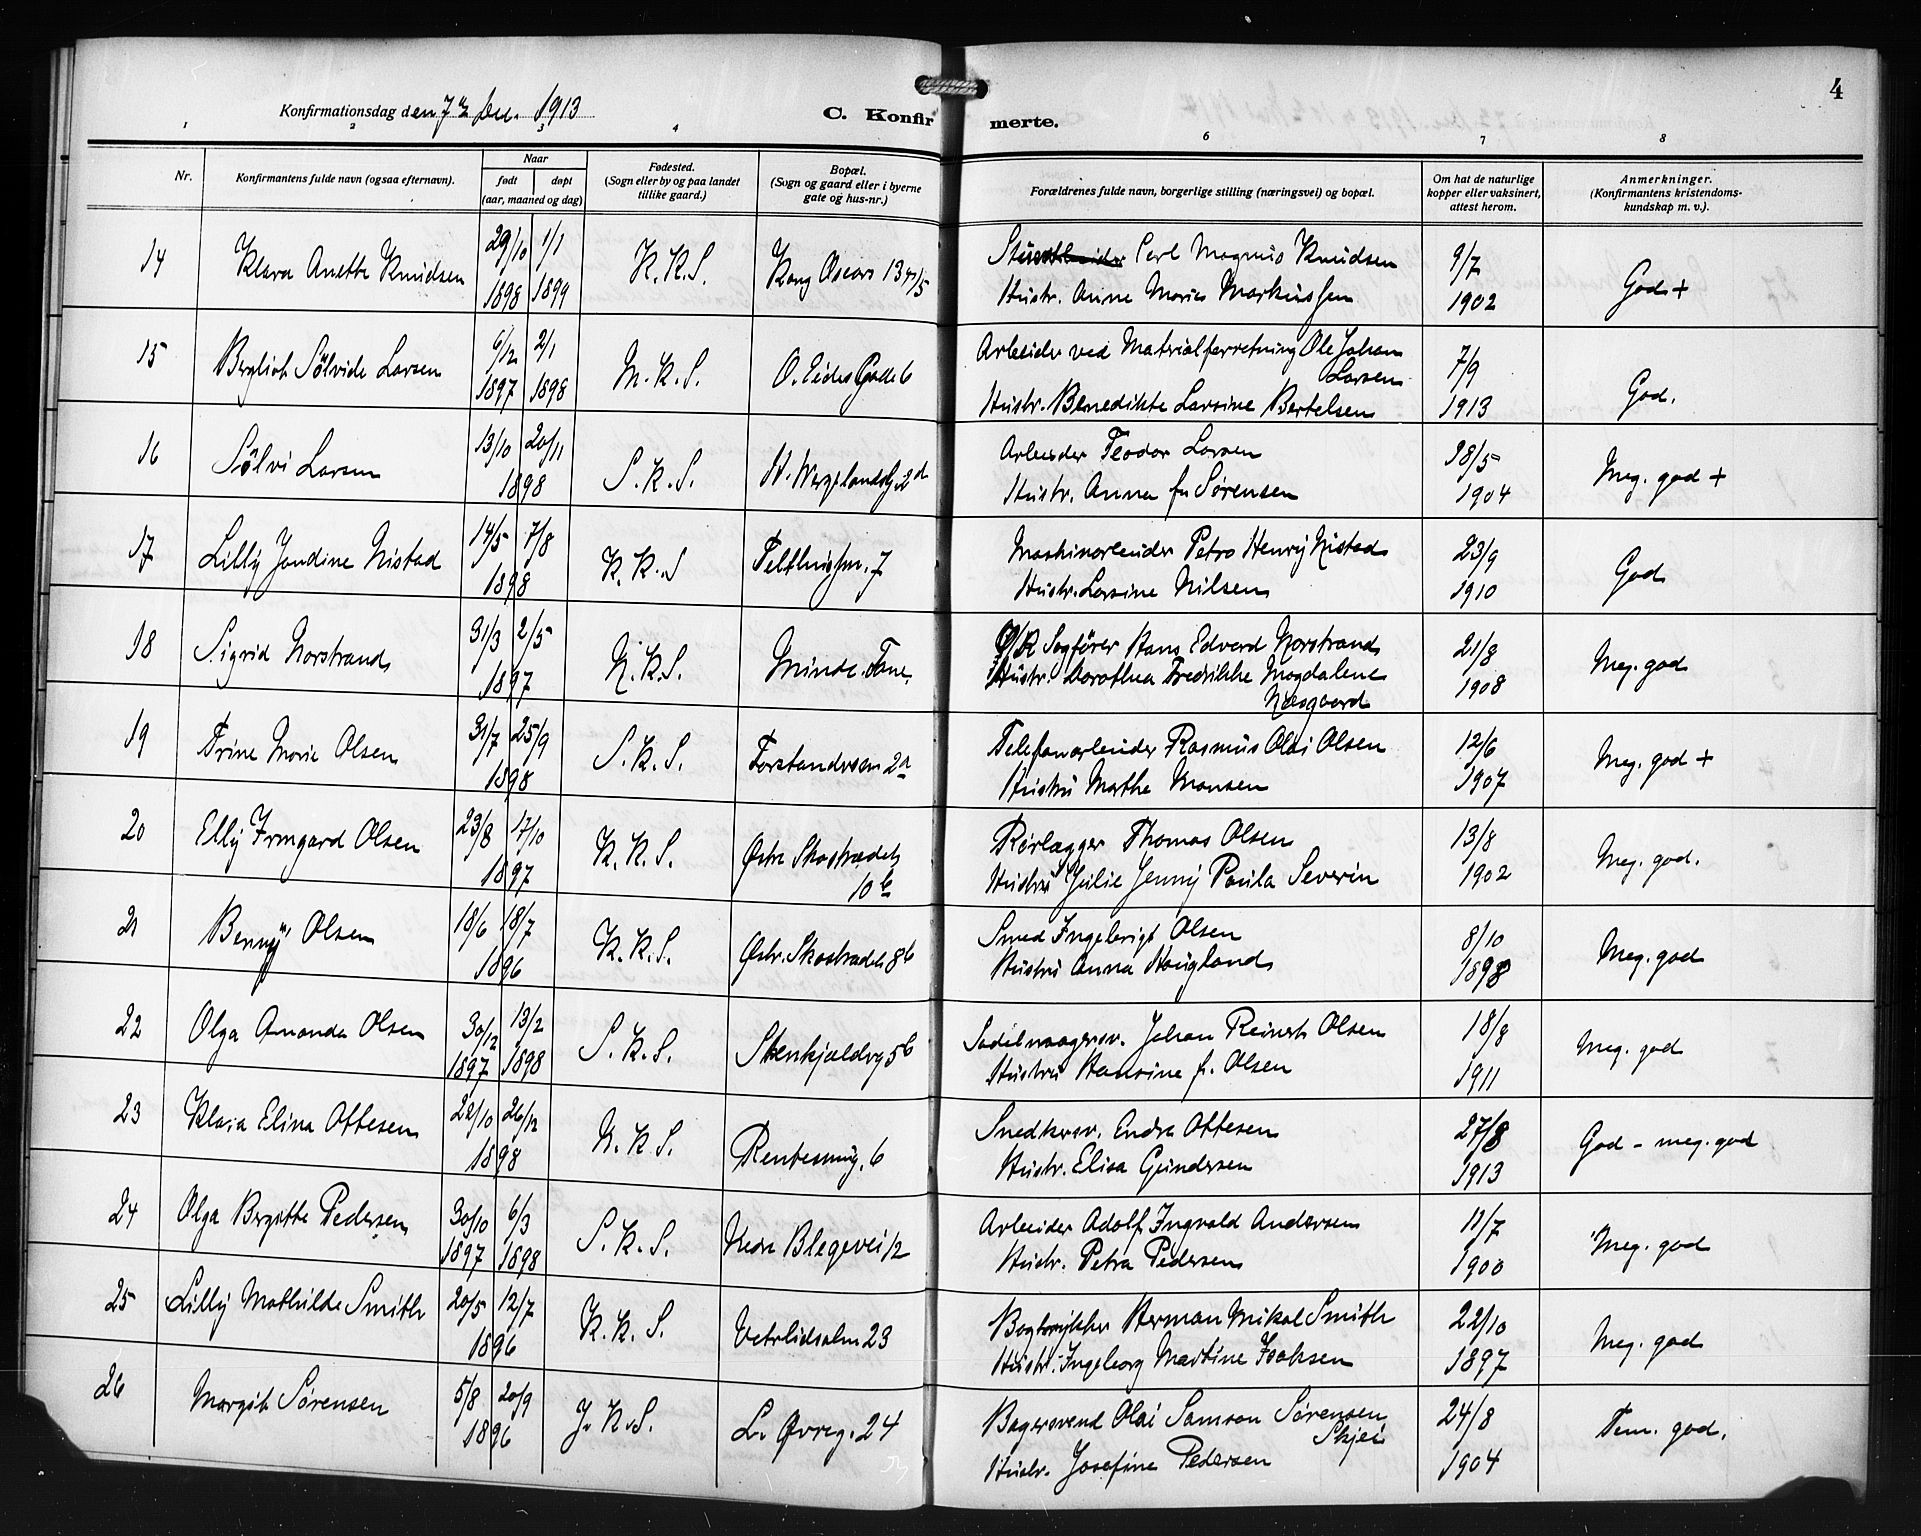 4
Konfirmationsdag den 7de Dec. 1913
C. Konfirmerte.
1 2 3 4 6 7 8
Nr.
Konfirmantens fulde navn (ogsaa efternavn).
Naar
født døpt
(aar, maaned og dag)
Fødested.
(Sogn eller by og paa landet
tillike gaard.)
Bopæl.
(Sogn og gaard eller i byerne
gate og hus-nr.)
Forældrenes fulde navn, borgerlige stilling (næringsvei) og bopæl.
Om hat de naturlige
kopper eller vaksinert,
attest herom.
Anmerkninger.
(Konfirmantens kristendoms-
kundskap m. v.).
14 Klara Anette Knudsen 29/10 1898 1/1 1899 K.K.S. Kong Oscars 134/5
Carl Magnus Knudsen 9/7
Hustr. Anne Marie Markussen 1902 God +
15 Berglioth Sölvide Larsen 6/12 1897 2/1 1898 M.K.S. O. Eides Gade 6
Arbeider ved Materialforretning Ole Johan
Larsen 7/9
Hustr. Benedikte Larsine Bertelsen 1913 God.
16 Sölvi Larsen 13/10 20/11 1898 S.K.S. H. Wergelandsg. 2d
Arbeider Teodor Larsen 28/5
Hustr. Anna f. Sørensen 1904 Meg. god +
17 Lilly Jondine Nistad 14/5 7/8 1898 K.K.S 7
Maskinarbeider Petro Henry Nistad 23/9
Hustr. Larsine Nilsen 1910 God
18 Sigrid Norstrand 31/3 2/5 1897 N.K.S. Minde. Fane.
O/R Sagfører Hans Edvard Norstrand 21/8
Hustr. Dorothea Fredrikke Magdalene 1908 Meg. god
Næsgaard
19 Trine Marie Olsen 31/7 25/9 1898 S.K.S. Forstandersm 2a
Telefonarbeider Rasmus Olai Olsen 12/6
Hustru Marthe Monsen 1907 Meg. god +
20 Elly Irmgard Olsen 23/8 17/10 1897 K.K.S. Østre Skostrædet
10b
Rørlægger Thomas Olsen 13/8
Hustru Julie Jenny Paula Severin 1902 Meg. god.
21 Benny Olsen 18/6 18/7 1896 K.K.S. Østr. Skostrædet 8b
Smed Ingebrigt Olsen 8/10
Hustru Anna Haugland 1898 Meg. god
22 Olga Amanda Olsen 30/12 1897 13/2 1898 S.K.S. Stenkjeldvg 5b
Sadelmagersv. Johan Reinert Olsen 18/8
Hustru Hansine f. Olsen 1911 Meg. god
23 Klara Elina Ottesen 22/10 26/12 1898 N.K.S. 6
Snedkersv. Endre Ottesen 27/8
Hustr. Elisa Gundersen 1913 God - meg. god
24 Olga Bergitte Pedersen 30/10 1897 6/3 1898 S.K.S. Nedre Blegevei 12
Arbeider Adolf Ingvald Andersen 11/7
Hustr. Petra Pedersen 1900 Meg. god
25 Lilly Mathilde Smith 20/5 12/7 1896 K.K.S. Vetrlidsalm 23
Bogtrykker Herman Mikal Smith 22/10
Hustr. Ingeborg Martine Isaksen 1897 Meg. god
26 Margit Sørensen 5/8 20/9 1896 J.K.S. L. Øvreg. 24
Bagersvend Olai Samson Sørensen 24/8
Skjei
Hustr. Josefine Pedersen 1904 Tem. god.